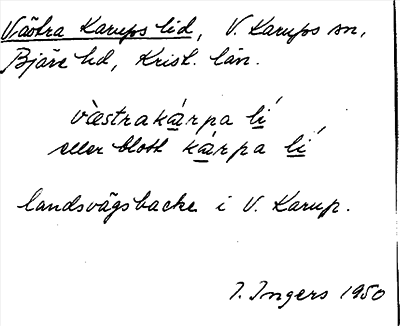 Västra Karups lid, V. Karups sn,
Bjäre hd, Krist. län.
væstrakárpa lí
eller blott kárpa lí
landsvägsbacke i V. Karup.
I. Ingers 1950